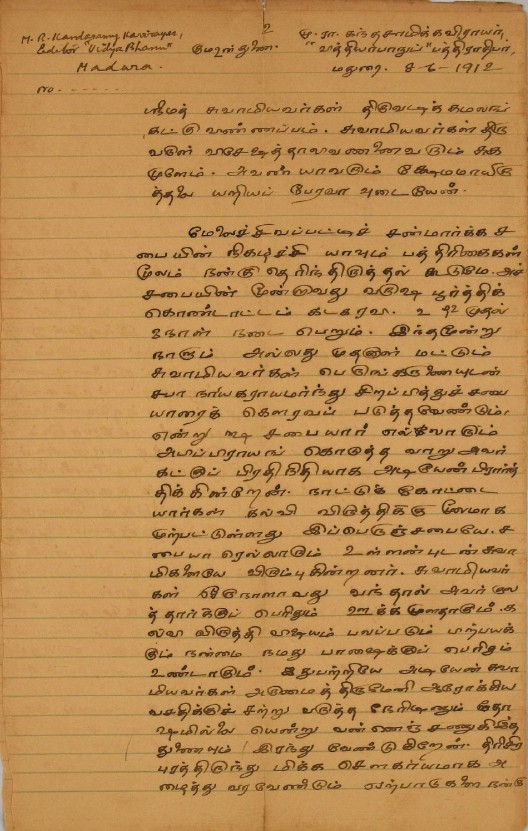 M. R. Kandasamy Kavirayer,
Editor "Vidya Bhanu"
Madura.
No ------
2
மேஉந்துணை.
மு. ரா. கந்தசாமிக்கவிராயர்,
"வித்தியாபாநு" பத்திராதிபர்,
மதுரை. 8-6-1912
ஸ்ரீமத் சுவாமியவர்கள் திருவடிக் கமலங்
கட்கு விண்ணப்பம். சுவாமியவர்கள் திரு
வருள் விசேஷத்தால் இவண் அனைவரும் சுக
முளேம். அவண் யாவரும் க்ஷேமமாயிரு
த்தலை யறியப் பேரவா வுடையேன்.
மேலைச்சிவப்பட்டிச் சன்மார்க்க ச
பையின் நிகழ்ச்சி யாவும் பத்திரிகைகள்
மூலம் நன்கு தெரிந்திருத்தல் கூடுமே. அச்
சபையின் மூன்றாவது வருஷ பூர்த்திக்
கொண்டாட்டம் முதல்
நடை பெறும். இந்தமூன்று
நாளும் அல்லது முதனாள் மட்டும்
சுவாமியவர்கள் பெருங்கருணையுடன்
சபா நாயகராயமர்ந்து சிறப்பித்துச் சபை
யாரைக் கௌரவப் படுத்தவேண்டும்.
என்று ௸ சபையார் எல்லோரும்
அபிப்பிராயங் கொடுத்த வாறு அவர்
கட்குப் பிரதிநிதியாக அடியேன் பிரார்
திக்கின்றேன். நாட்டுக் கோட்டை
யார்கள் கல்வி விருத்திக்கு
முற்பட்டுள்ளது இப்பெருஞ்சபையே. ச
பையா ரெல்லாரும் உள்ளன்புடன் சுவா
மிகளையே விரும்புகின்றனர். சுவாமியவர்
கள் ஒருநாளாவது வந்தால் அவர்
த்தார்க்குப் பெரிதும் ஊக்க முளதாகும். க
ல்வி விருத்தி விஷயம் பலப்படும் பிற்பயக்
கும் நன்மை நமது பாஷைக்குப் பெரிதும்
உண்டாகும். இதுபற்றியே அடியேன் சுவா
மியவர்கள் அருமைத் திருமேனி ஆரோக்கிய
வசதிக்குச் சற்று வருத்த நேரினும் தோ
ஷமில்லை யென்று
துணையும் இரந்து வேண்டுகிறேன். திரிசிர
புரத்திருந்து மிக்க சௌகர்யமாக அ
ழைத்து வரவேண்டும் ஏற்பாடுகளை நன்கு